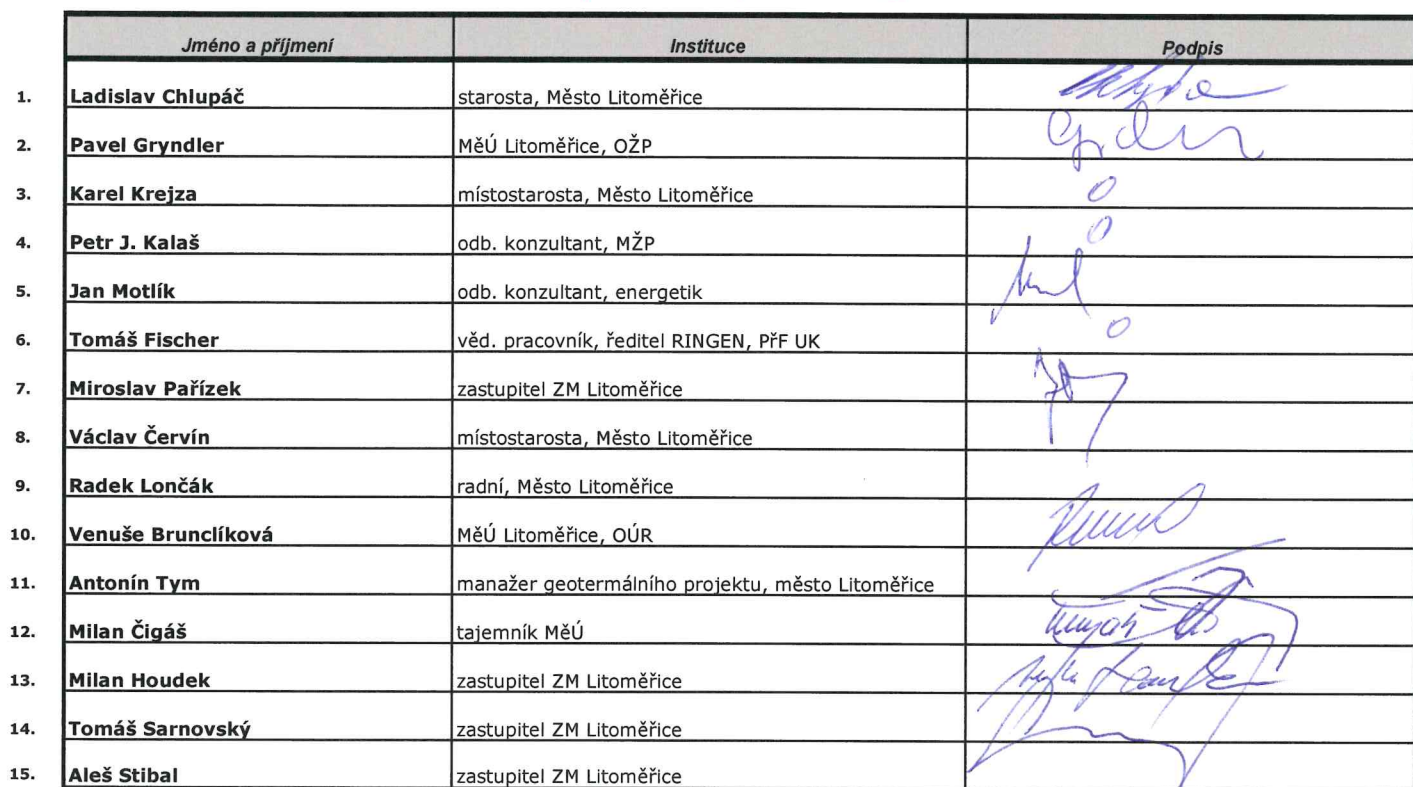 Jméno a příjmení Instituce Podpis
1. Ladislav Chlupáč starosta, Město Litoměřice
2. Pavel Gryndler MěÚ Litoměřice, OŽP
3. Karel Krejza místostarosta, Město Litoměřice O
4. Petr J. Kalaš odb. konzultant, MŽP O
5. Jan Motlík odb. konzultant, energetik
6. Tomáš Fischer věd. pracovník, ředitel RINGEN, PřF UK O
7. Miroslav Pařízek zastupitel ZM Litoměřice
8. Václav Červín místostarosta, Město Litoměřice
9. Radek Lončák radní, Město Litoměřice
10. Venuše Brunclíková MěÚ Litoměřice, OÚR
11. Antonín Tym manažer geotermálního projektu, město Litoměřice
12. Milan Čigáš tajemník MěÚ
13. Milan Houdek zastupitel ZM Litoměřice
14. Tomáš Sarnovský zastupitel ZM Litoměřice
15. Aleš Stibal zastupitel ZM Litoměřice